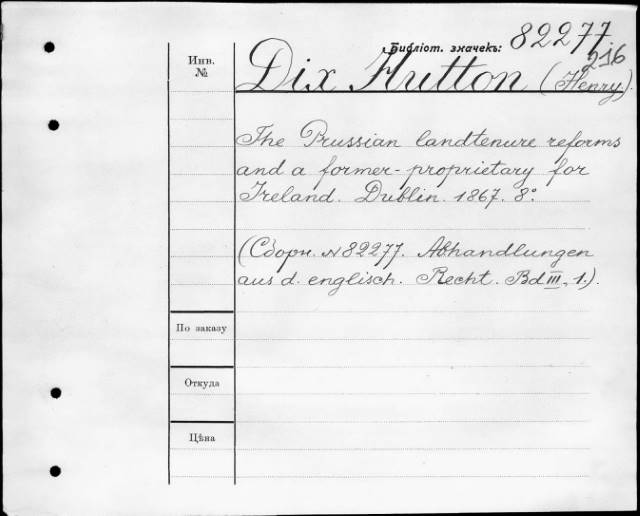 Библіот. значекъ: 82277
216
Инв. №
Dix Hutton (Henry).
The Prussian landtenure reforms
and a former-proprietary for
Ireland. Dublin. 1867. 8°.
(Сборн. N 82277. Abhandlungen
aus d. englisch. Recht. Bd III, 1.).
По заказу
Откуда
Цѣна